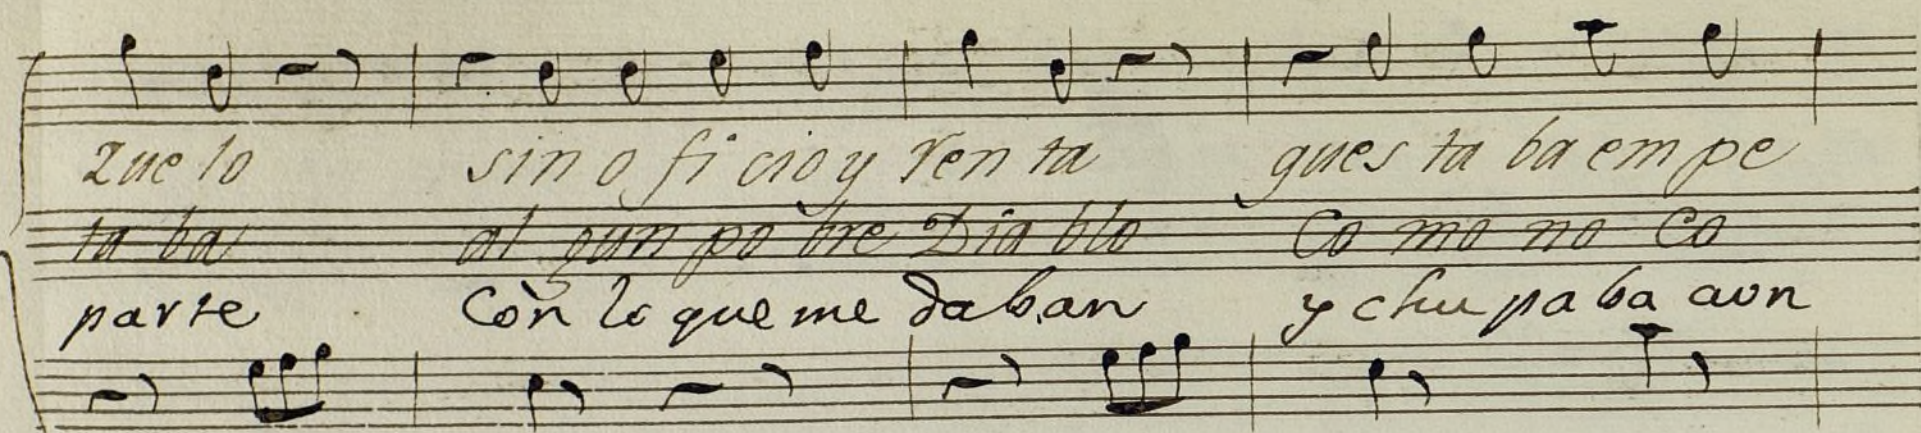 zue lo sin o fi cio y ren ta ques ta ba em pe
ta ba al gun po bre Dia blo Co mo no Co
parte Con lo que me daban y chu pa ba aon